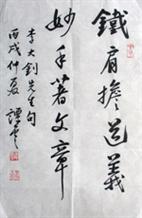 鐵肩擔道義
妙手著文章
李大釗先生句
丙戌仲夏 譚雲